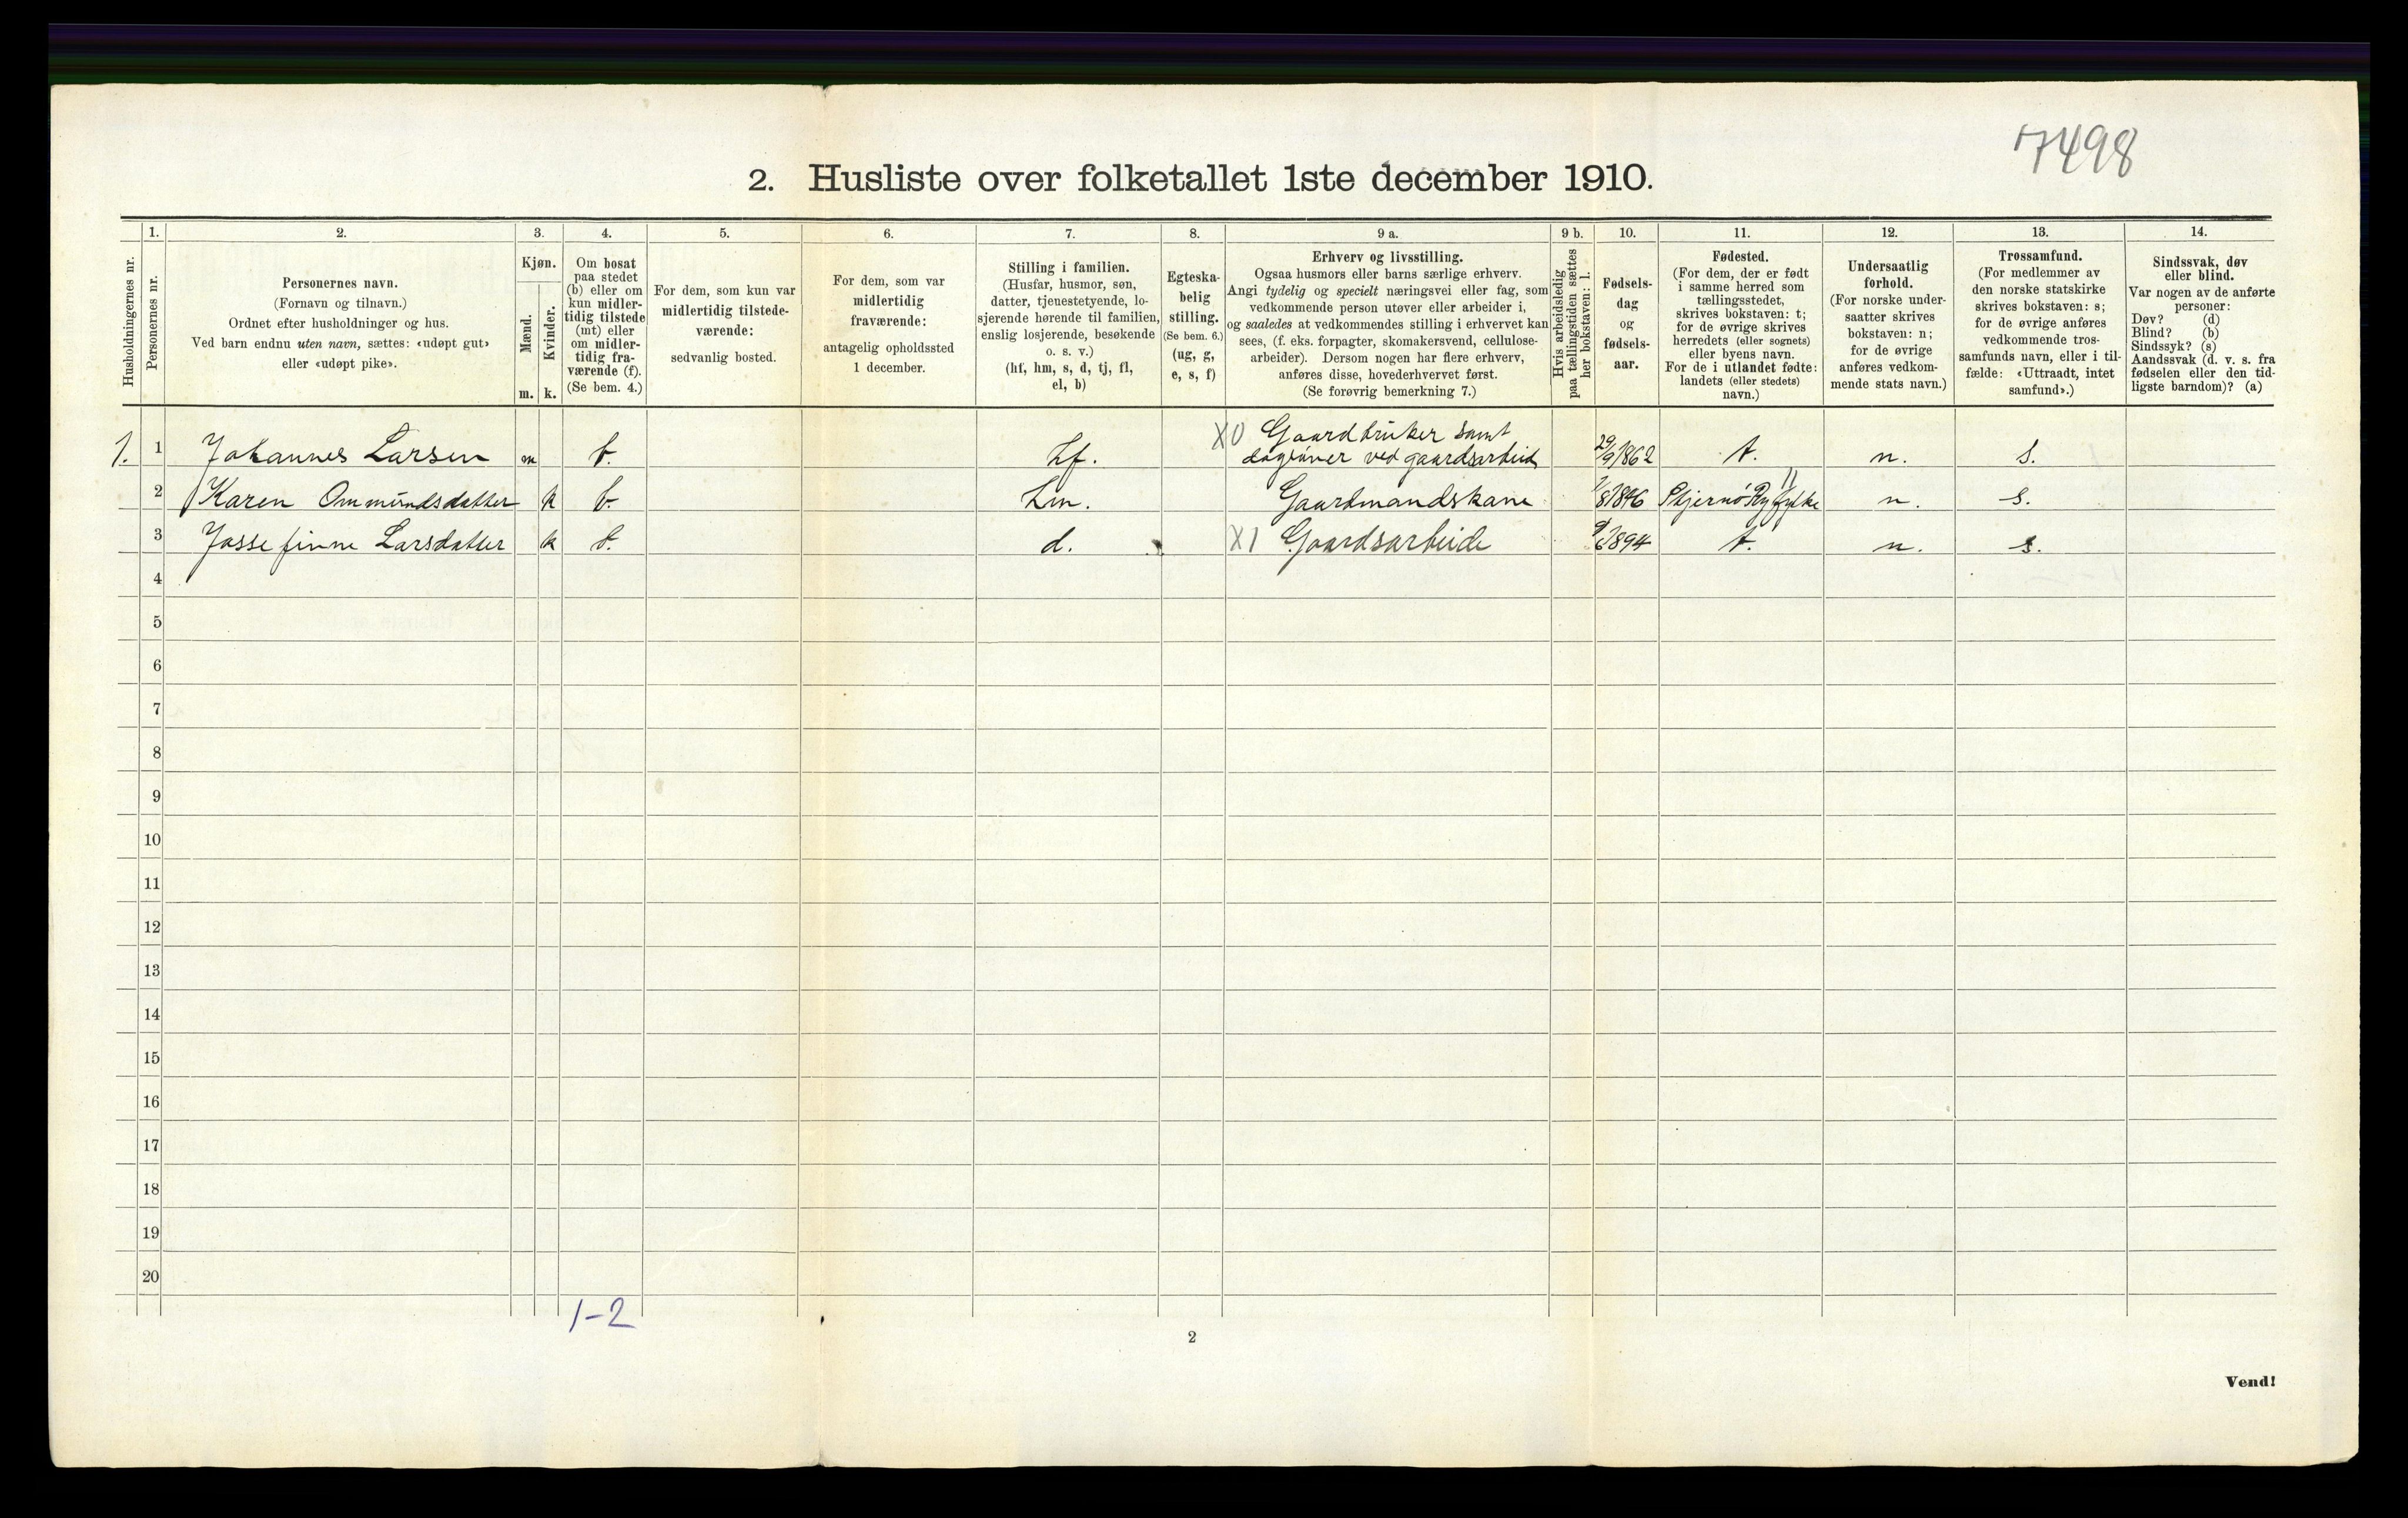 7498
2. Husliste over folketallet 1ste december 1910.
Husholdningernes nr.
1.
Personernes nr.
2.
Personernes navn.
(Fornavn og tilnavn.)
Ordnet efter husholdninger og hus.
Ved barn endnu uten navn, sættes: «udøpt gut»
eller «udøpt pike».
3.
Kjøn.
Mænd.
Kvinder.
m. k.
4.
Om bosat
paa stedet
(b) eller om
kun midler-
tidig tilstede
(mt) eller
om midler-
tidig fra-
værende (f).
(Se bem. 4.)
5.
For dem, som kun var
midlertidig tilstede-
værende:
sedvanlig bosted.
6.
For dem, som var
midlertidig
fraværende:
antagelig opholdssted
1 december.
7.
Stilling i familien.
(Husfar, husmor, søn,
datter, tjenestetyende, lo-
sjerende hørende til familien,
enslig losjerende, besøkende
o. s. v.)
(hf, hm, s, d, tj, fl,
el, b)
8.
Egteska-
belig
stilling.
(Se bem. 6.)
(ug, g,
e, s, f)
9 a.
Erhverv og livsstilling.
Ogsaa husmors eller barns særlige erhverv.
Angi tydelig og specielt næringsvei eller fag, som
vedkommende person utøver eller arbeider i,
og saaledes at vedkommendes stilling i erhvervet kan
sees, (f. eks. forpagter, skomakersvend, cellulose-
arbeider). Dersom nogen har flere erhverv,
anføres disse, hovederhvervet først.
(Se forøvrig bemerkning 7.)
9 b.
Hvis arbeidsledig
paa tællingstiden sættes
her bokstaven: l.
10.
Fødsels-
dag
og
fødsels-
aar.
11.
Fødested.
(For dem, der er født
i samme herred som
tællingsstedet,
skrives bokstaven: t;
for de øvrige skrives
herredets (eller sognets)
eller byens navn.
For de i utlandet fødte:
landets (eller stedets)
navn.)
12.
Undersaatlig
forhold.
(For norske under-
saatter skrives
bokstaven: n;
for de øvrige
anføres vedkom-
mende stats navn.)
13.
Trossamfund.
(For medlemmer av
den norske statskirke
skrives bokstaven: s;
for de øvrige anføres
vedkommende tros-
samfunds navn, eller i til-
fælde: «Uttraadt, intet
samfund».)
14.
Sindssvak, døv
eller blind.
Var nogen av de anførte
personer:
Døv? (d)
Blind? (b)
Sindssyk? (s)
Aandssvak (d. v. s. fra
fødselen eller den tid-
ligste barndom)? (a)
1. 1 Johannes Larsen m b. hf. X0 Gaardbruker samt dagløner ved gaardsarbeide 29/9 1862 t. n. s.
2 Karen Ommundsdatter k b. hm. Gaardmandskone Stjernø Ryfylke n. s.
3 Jossefinne Larsdatter k b. d. X1 Gaardsarbeide t. n. s.
4
5
6
7
8
9
10
11
12
13
14
15
16
17
18
19
20
1-2
2
Vend!